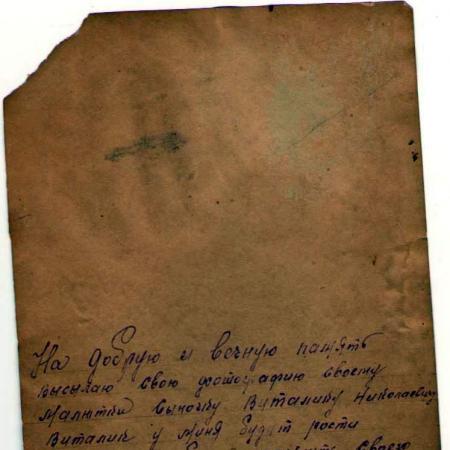 На добрую и вечную память
высылаю свою фотографию своему
малютки сыночку Виталику Николаевичу
Виталик у меня будит рости
своего